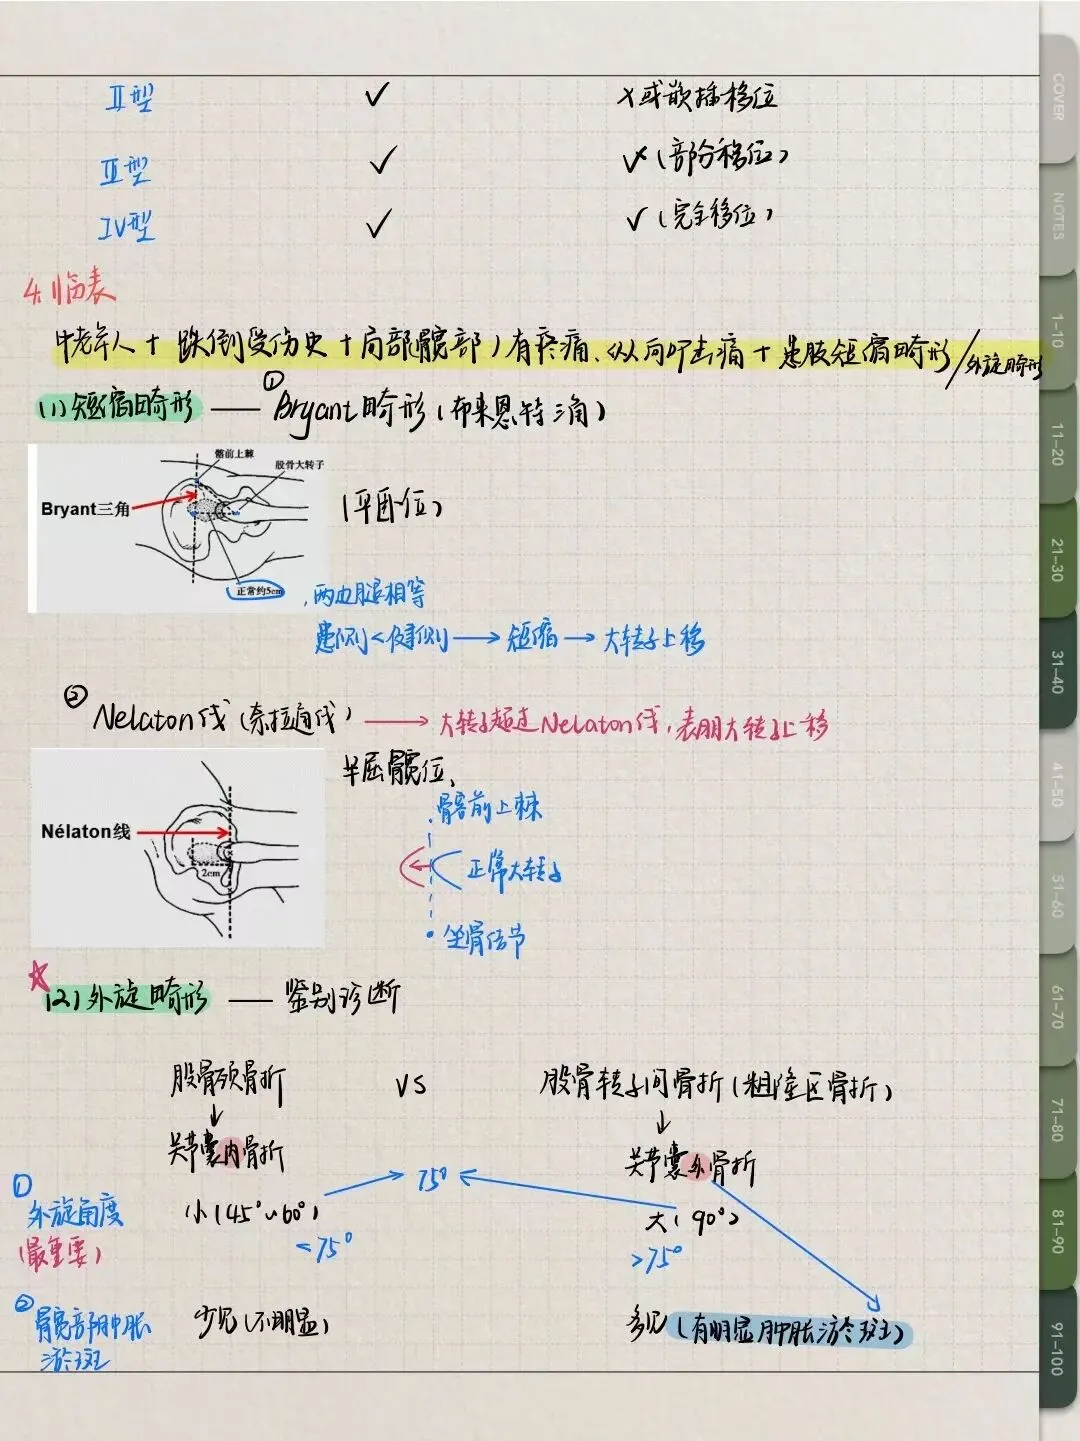 II型 ✓ ×或嵌插移位
III型 ✓ ✓(部分移位)
IV型 ✓ ✓(完全移位)
4.临表
中老年人+跌倒受伤史+局部(髋部)有疼痛、纵向叩击痛+患肢短缩畸形/外旋畸形
(1)短缩畸形——①Bryant畸形(布来恩特三角)
髂前上棘
股骨大转子
Bryant三角
(平卧位)
正常约5cm
,两边腿相等
患侧<健侧→短缩→大转子上移
②Nelaton线(奈拉通线)→大转子超过Nelaton线,表明大转子上移
半屈髋位、
髂前上棘
Nélaton线
正常大转子
2cm
坐骨结节
☆(2)外旋畸形——鉴别诊断
股骨颈骨折 VS 股骨转子间骨折(粗隆区骨折)
↓ ↓
关节囊内骨折 关节囊外骨折
① 75°
外旋角度 小(45°~60°) 大(90°)
(最重要) <75° >75°
②髋部肿胀 少见(不明显) 多见(有明显肿胀淤斑)
淤斑
COVER
NOTES
1-10
11-20
21-30
31-40
41-50
51-60
61-70
71-80
81-90
91-100